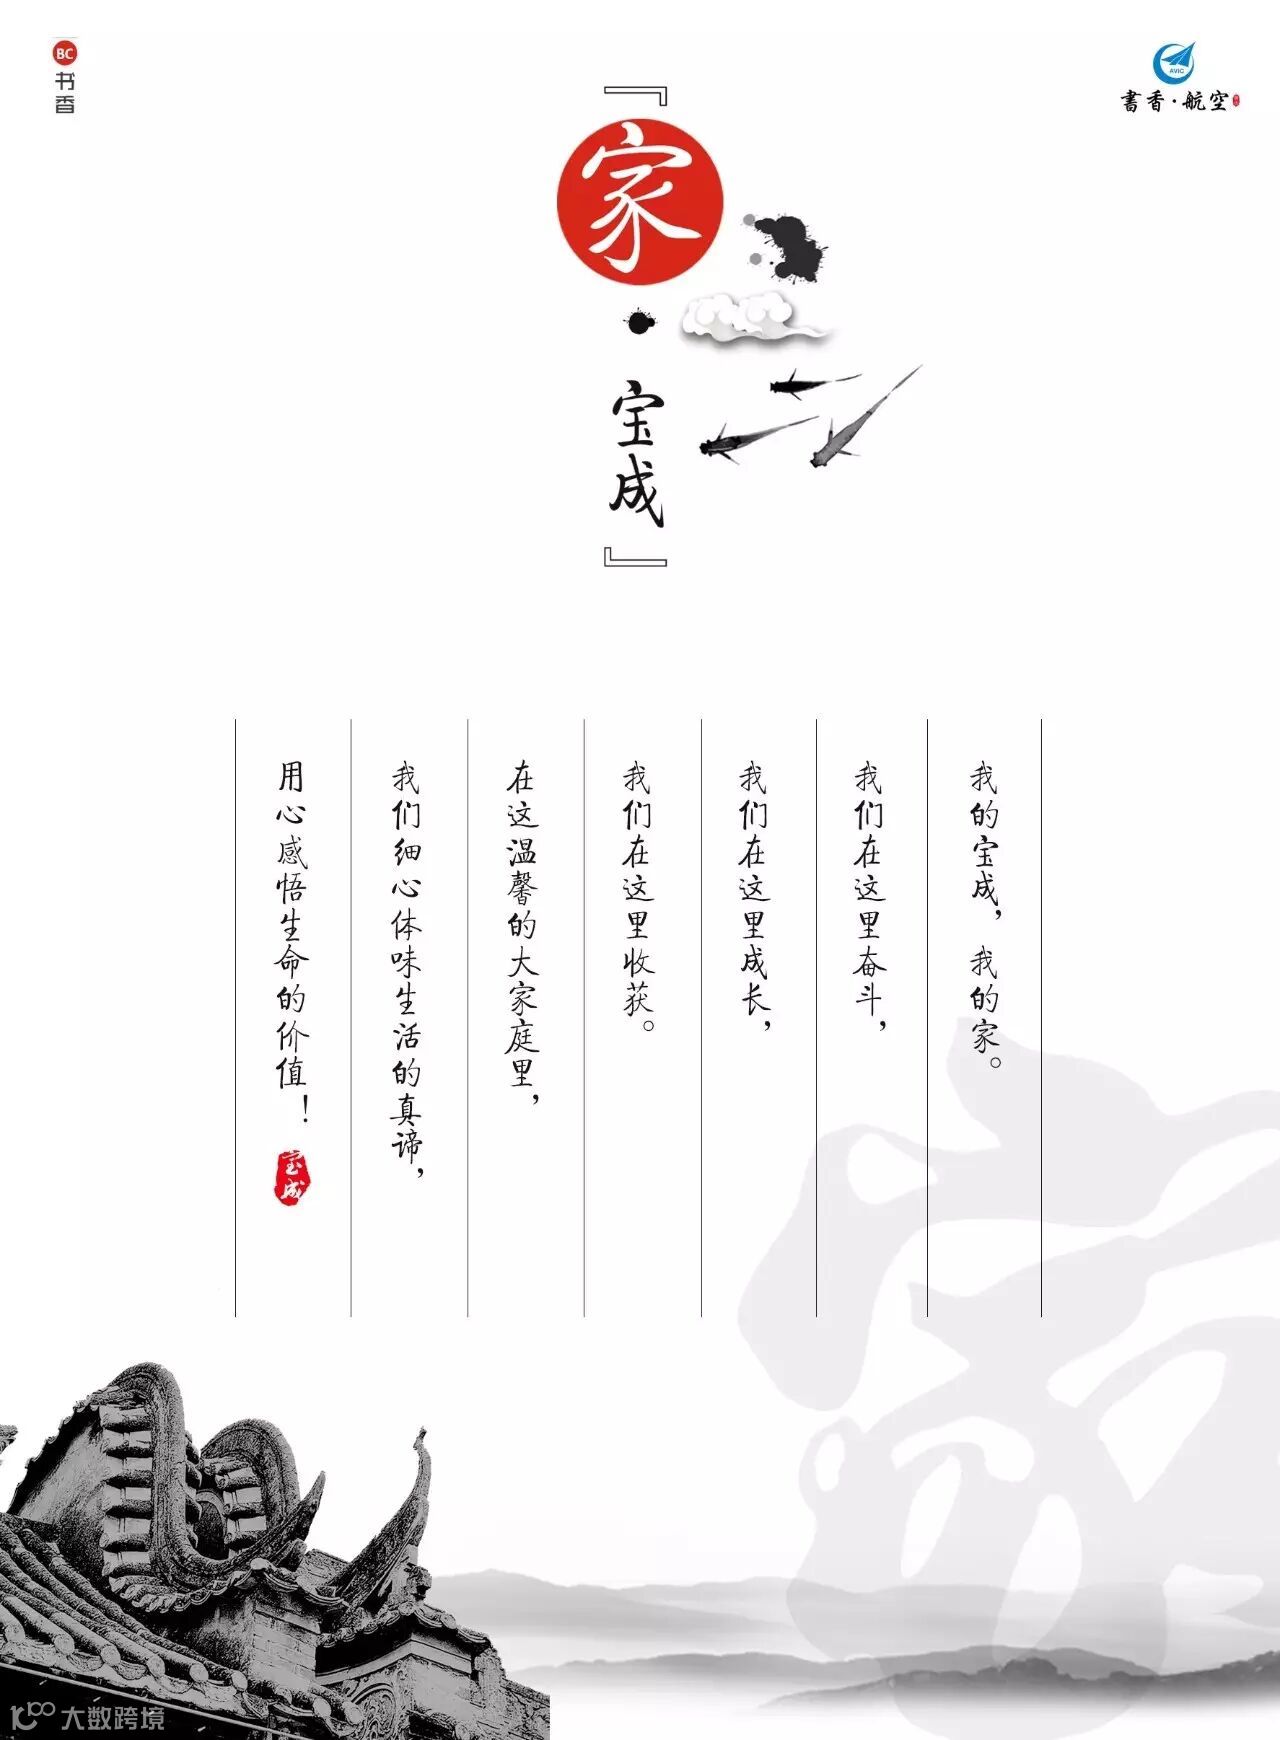 BC
书香
AVIC
書香·航空
『家·宝成』
我的宝成，我的家。
我们在这里奋斗，
我们在这里成长，
我们在这里收获。
在这温馨的大家庭里，
我们细心体味生活的真谛，
用心感悟生命的价值！
宝成
大数跨境